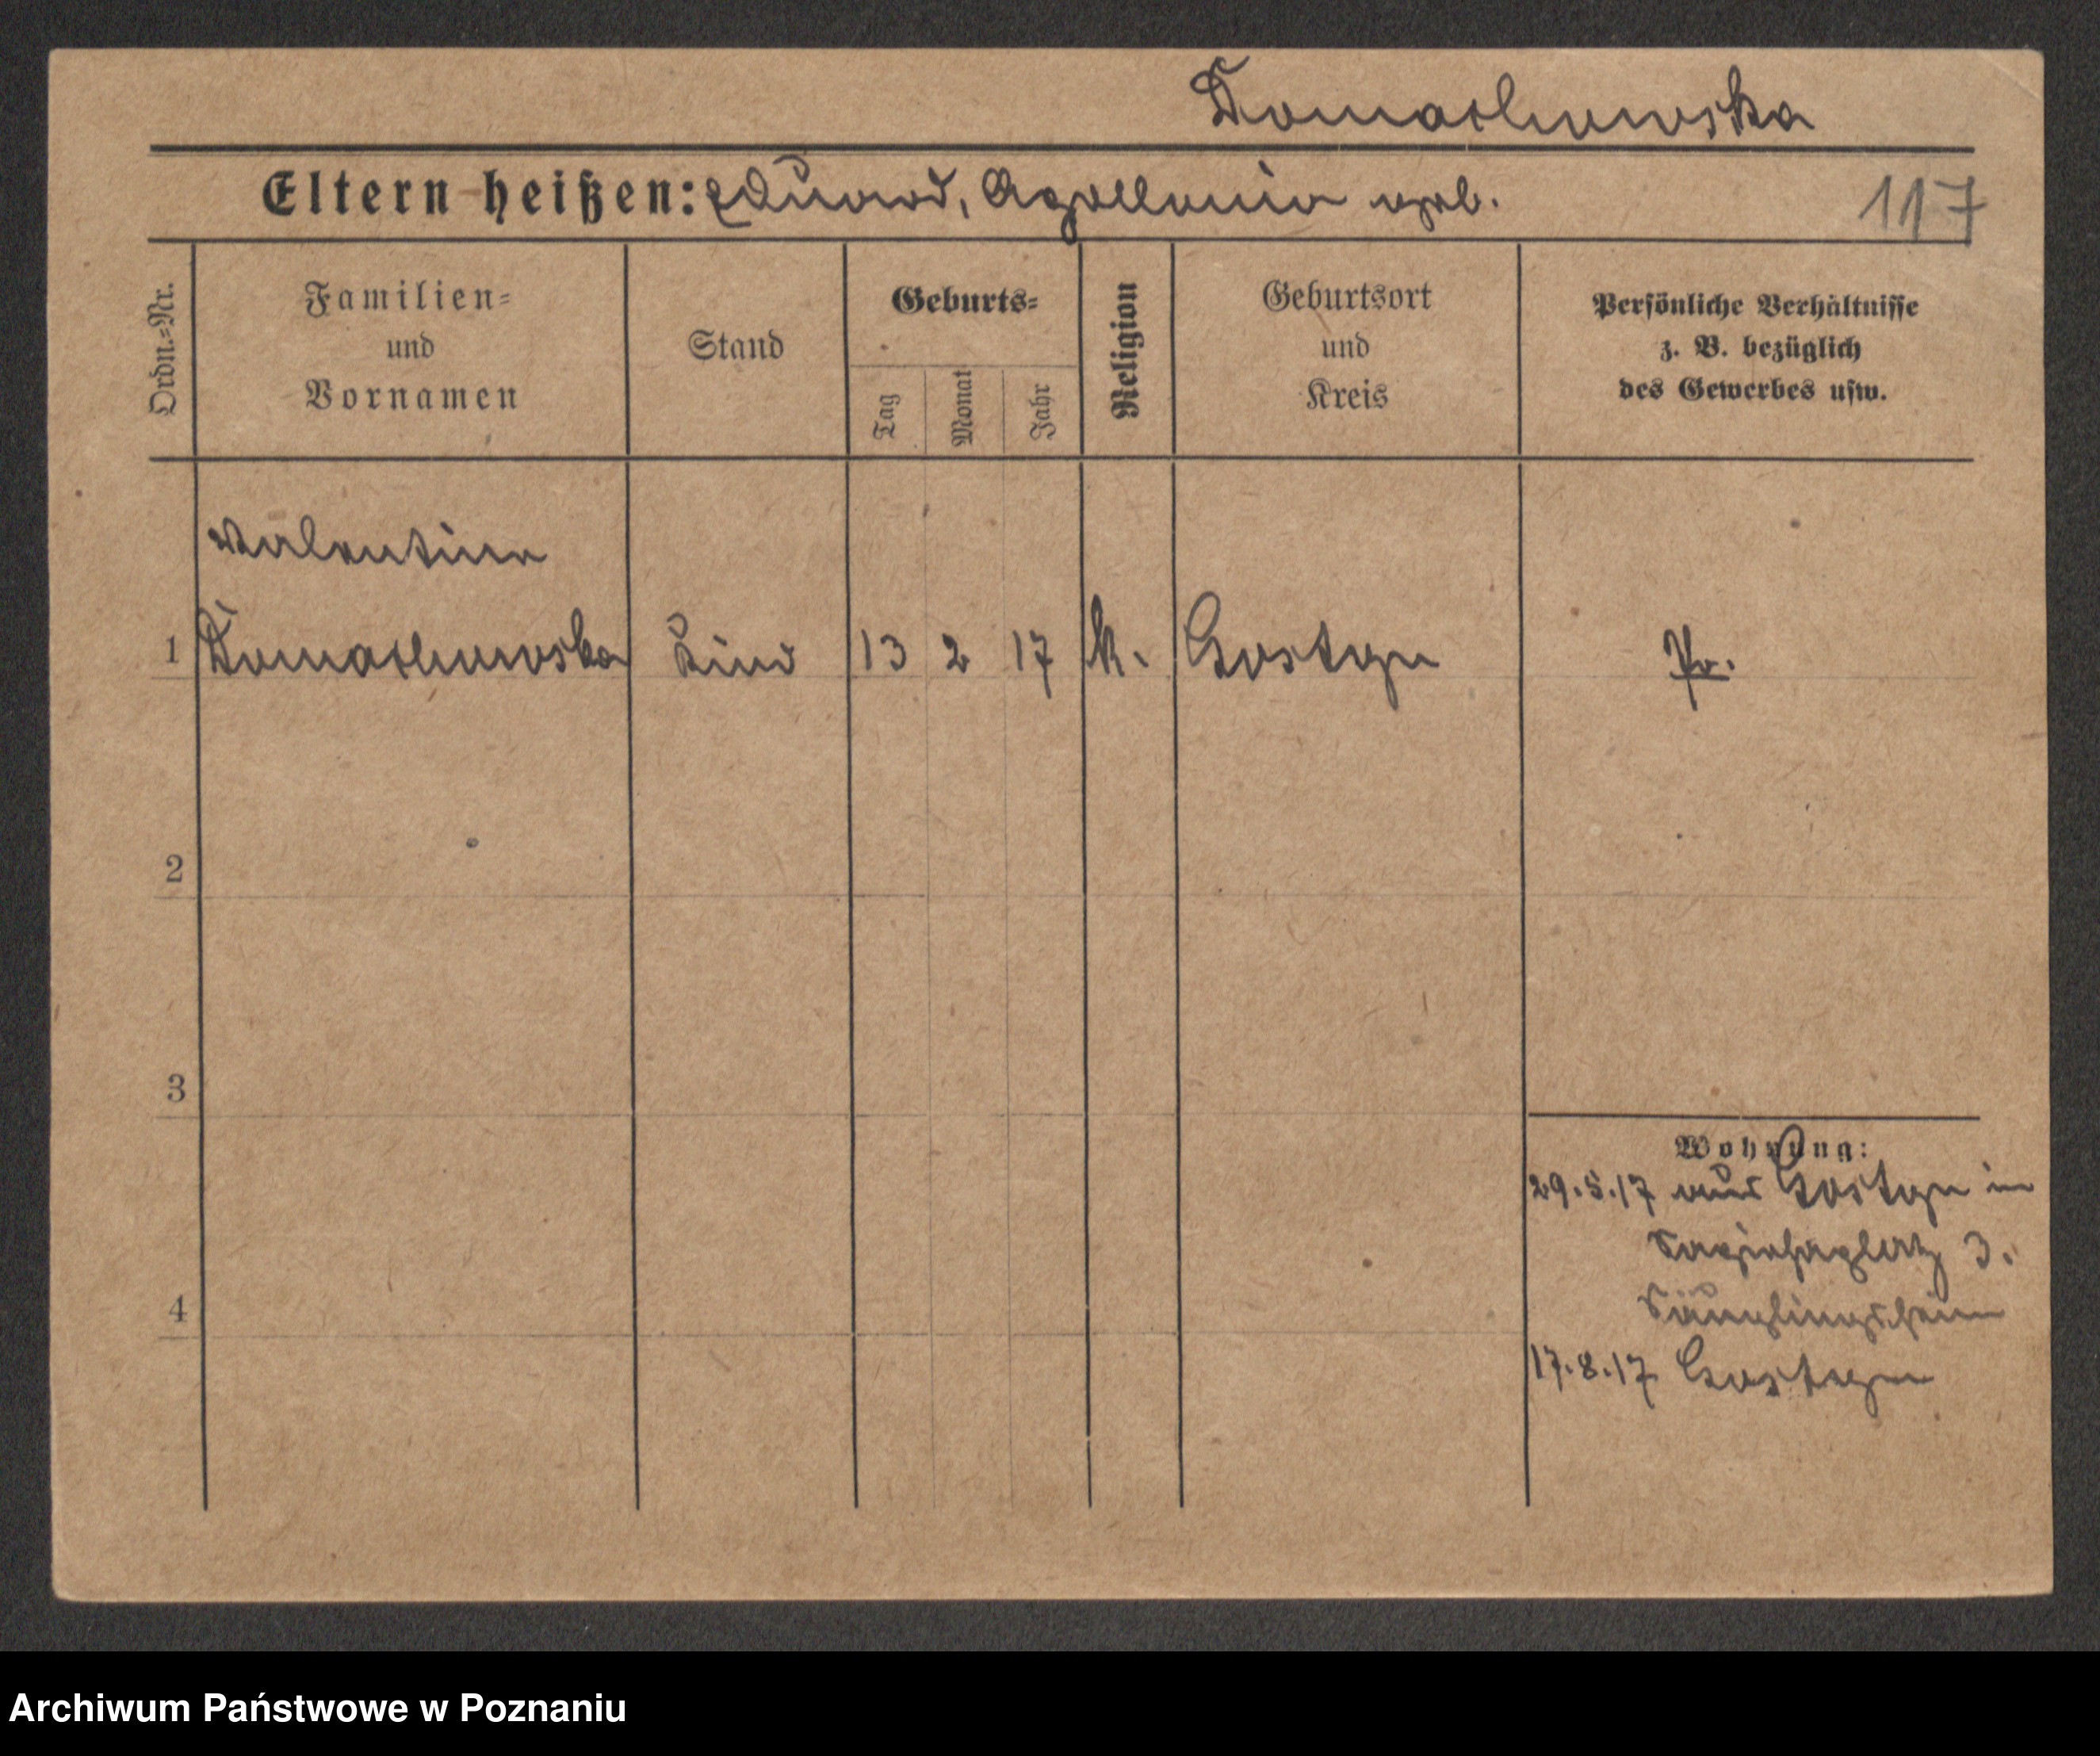 Domachowska
Eltern heißen: Eduard, Apollonia geb.
117
Ordn.=Nr.
Familien=
und
Vornamen
Stand
Geburts=
Tag
Monat
Jahr
Religion
Geburtsort
und
Kreis
Persönliche Verhältnisse
z. B. bezüglich
des Gewerbes usw.
Valentina
1 Domachowska Kind 13 2 17 k. Gostyn Pr.
2
3
4
Wohnung:
29.5.17 aus Gostyn in
Sapiehaplatz 3.
Säuglingsheim
17.8.17 Gostyn
Archiwum Państwowe w Poznaniu